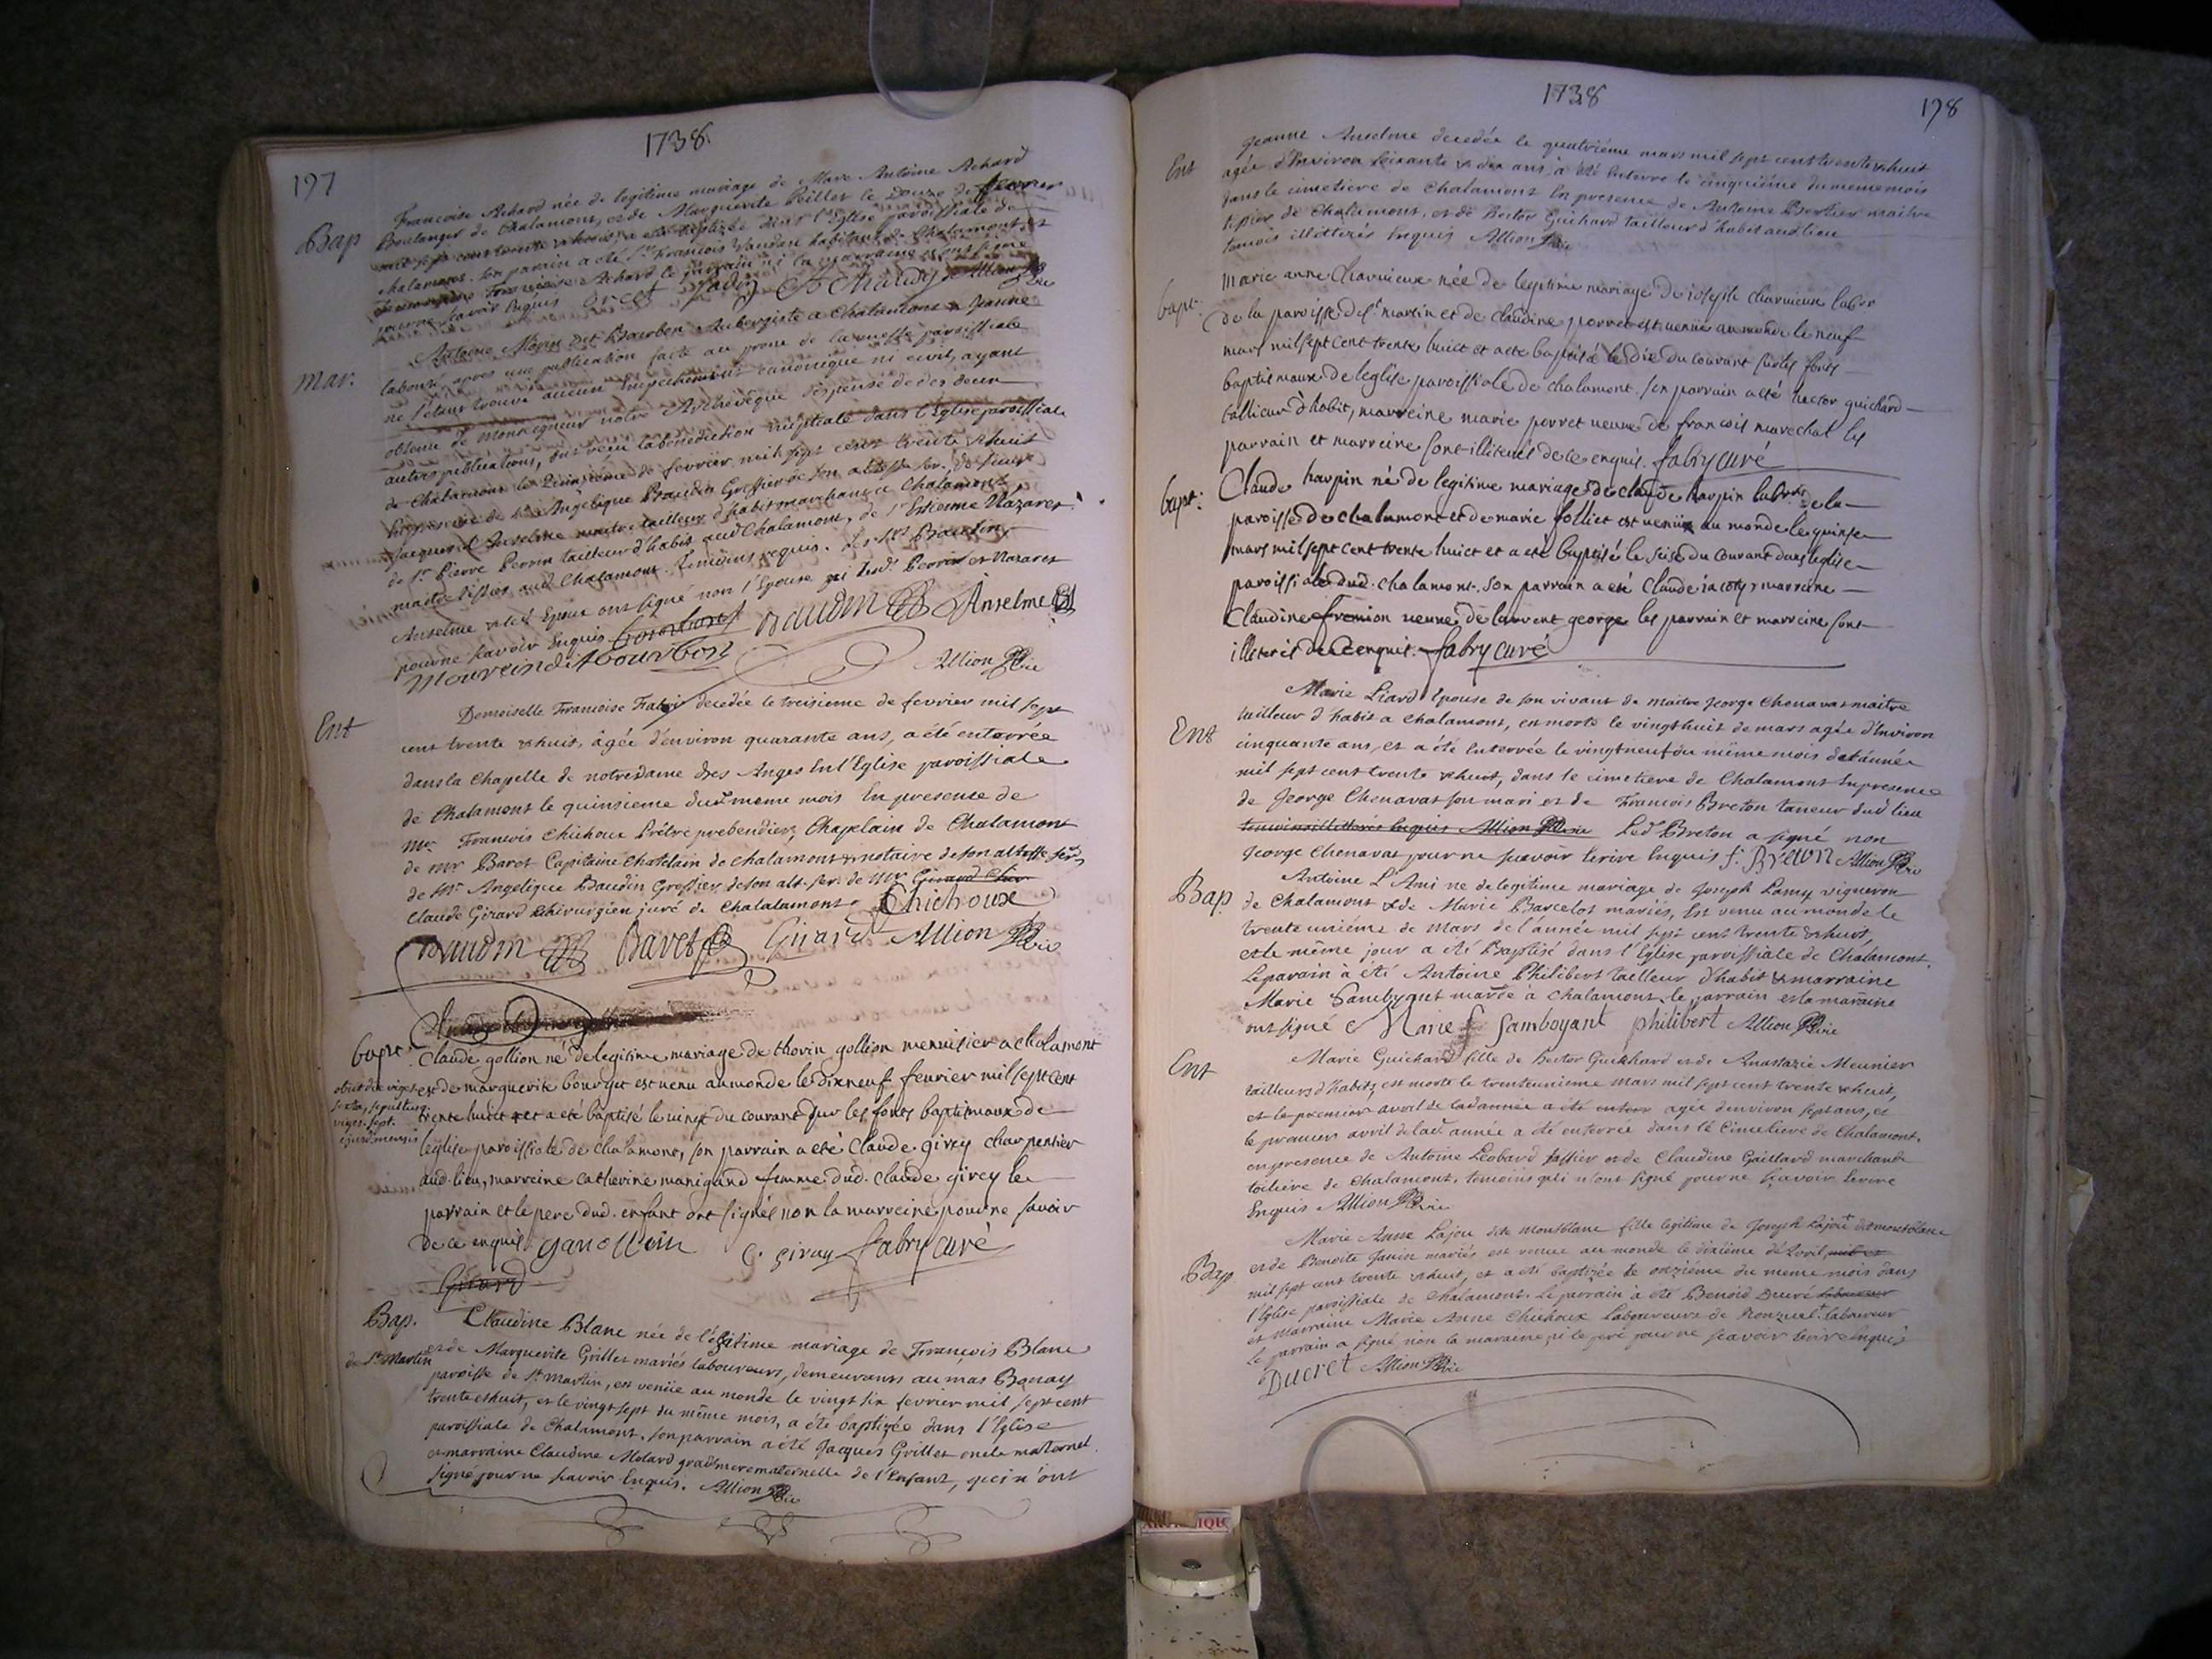 1738
197
Bap
Francoise Achard née de legitime mariage de Marc Antoine Achard
Boulanger de Chalamont, et de Marguerite Peillet le Douze de fevrier
mil sept cent trente & huit, a eté baptizée dans l'Eglise paroissiale de
Chalamont. Son parrain a été Sr. francois Vaudan habitant de Chalamont, et
Francoise Achard le parrain ni la marraine n'ont signé
pourne savoir Enquis Allion Vic
mar.
Antoine Morin dit Bourbon Aubergiste a Chalamont & Jeanne
labonte, apres une publication faite au prone de la messe paroissiale
ne s'etant trouvé aucun Empechement canonique ni civil, ayant
obtenu de Monseigneur notre Archevêque dispense de des deux
autres publications, ont reçu la benediction nuptiale dans l'Eglise paroissiale
de Chalamont le de fevrier mil sept cent trente & huit
En presence de Angélique Baudin Greffier de Son altesse ser. de sieur
Jacques d'Anselme maitre tailleur d'habit marchant a Chalamont
de Sr. Pierre Perrin tailleur d'habit aud Chalamont, de Sr Estienne Nazaret
maitre tissier aud Chalamont. temoins requis. Les Srs Baudin,
Anselme & led Epoux ont signé non l'Epouse ni lesd. Perrin et Nazaret
pourne sçavoir Enquis. Bourbon Baudin Anselme
Mourin dit bourbon Allion Vic
Ent
Demoiselle Francoise Fabri decedée le treisieme de fevrier mil sept
cent trente & huit, âgée d'environ quarante ans, a été enterrée
dans la Chapelle de notredame des Anges En l'Eglise paroissiale
de Chalamont le quinsieme dud meme mois En presence de
Mre. Francois Chichoux Prêtre prebendier, Chapelain de Chalamont
de mr Baret Capitaine Chatelain de Chalamont & notaire de son altesse ser.
de Mr. Angelique Baudin Greffier de son alt. ser. de Mr. Girard Chir
Claude Girard Chirurgien juré de Chalalamont. Chichoux
Baudin Baret Girard Allion Vic
bapt:
Claude gollion né de legitime mariage de thorin gollion menuisier a chalamont
et de marguerite bourgut est venu au monde le dixneuf fevrier mil sept cent
trente huict et a eté baptisé le vingt du courant sur les fonts baptismaux de
leglise paroissiale de chalamont, son parrain a eté Claude girey charpentier
aud. lieu, marreine catherine manigand femme dud. claude girey le
parrain et le pere dud. enfant ont signés non la marreine pour ne savoir
de ce enquis. C. giray fabry curé
Girard
obiit die viges.
sexta, sepultus
viges. sept.
ejusd mensis
Bap.
de St. Martin
Claudine Blanc née de légitime mariage de François Blanc
et de Marguerite Grillet mariés laboureurs, demeurants au mas Bonay
paroisse de St. Martin, est venüe au monde le vingt six fevrier mil sept cent
trente et huit, et le vingt sept du même mois, a été baptizée dans l'Eglise
paroissiale de Chalamont, son parrain a été Jacques Grillet oncle maternel
et marraine Claudine Molard grandmere maternelle de l'Enfant, qui n'ont
signé pour ne savoir Enquis. Allion Vic
1738
198
Ent
Jeanne Anselme decedée le quatriéme mars mil sept cent trente & huit
agée d'Environ soixante & dix ans, a été Enterré le cinquiéme du meme mois
dans le cimetiere de Chalamont En presence de Antoine Bertier maitre
tissier de Chalamont, et de hector Guichard tailleur d'habit aud lieu
temoins illitterés Enquis Allion Vic
bapt:
marie anne Charvieux née de legitime mariage de ioseph charvieux labor
de la paroisse de St. martin et de claudine porret est venüe au monde le neuf
mars mil sept cent trente huict et a ete baptisé le dix du courant sur les fonts
baptismaux de leglise paroissiale de chalamont. son parrain a eté hector guichard
tallieur d'habit, marreine marie porret veuve de francois marechal les
parrain et marreine sont illiterés de ce enquis. fabry curé
bapt:
Claude harpin né de legitime mariage de claude harpin labor. de la
paroisse de chalamont et de marie folliet est venüe au monde le quinse
mars mil sept cent trente huict et a eté baptisé le seise du courant dans leglise
paroissiale dud. chalamont. son parrain a eté Claude iacoty, marreine
Claudine fremion veuve de laurent george les parrain et marreine sont
illiterés de ce enquis. fabry curé
Ent
Marie Liard Epouse de son vivant de maitre George Chenavat maitre
tailleur d'habit a Chalamont, est morte le vingthuit de mars agée d'Environ
cinquante ans, et a été Enterrée le vingtneuf du même mois de l'année
mil sept cent trente & huit, dans le cimetiere de Chalamont En presence
de George Chenavat son mari et de Francois Breton taneur dud lieu
temoins illitterés Enquis Allion Vic Led Breton a signé non
George Chenavat pour ne sçavoir Ecrire Enquis f. Breton Allion Vic
Bap.
Antoine L'Ami né de legitime mariage de Joseph Lamy vigneron
de Chalamont & de Marie Barcelot mariés, Est venu au monde le
trente uniéme de mars de l'année mil sept cent trente & huit,
et le même jour a été Baptisé dans l'Eglise paroissiale de Chalamont
Le parain à été Antoine Philibert tailleur d'habit & marraine
Marie Samboyant mariée à Chalamont, le parrain et la maraine
ont signé Marie Samboyant philibert Allion Vic
Ent
Marie Guichard fille de hector Guichard et de Anastazie Meunier
tailleurs d'habits, est morte le trenteunieme mars mil sept cent trente & huit,
et le premier avril de lad année a été enterr agée d'environ sept ans, et
le premier avril de lad. année a été enterrée dans le Cimetiere de Chalamont,
en presence de Antoine Leobard tissier et de Claudine Gaillard marchande
toiliere de Chalamont, temoins qui n'ont signé pour ne sçavoir Ecrire
Enquis Allion Vic
Bap
Marie Anne Lajou dite Montblanc fille legitime de Joseph Lajou dit montblanc
et de Benoite Janin mariés est venue au monde le dixiéme d'Avril mil et
mil sept cent trente & huit, et a été baptizée le onziéme du meme mois dans
l'Eglise paroissiale de Chalamont. Le parrain a été Benoid Ducré laboureur
et marraine Marie Anne Chichoux Laboureurs de Ronzuel laboureur
Le parrain a signé non la maraine ni le peré pour ne sçavoir Ecrire Enquis
Ducret Allion Vic